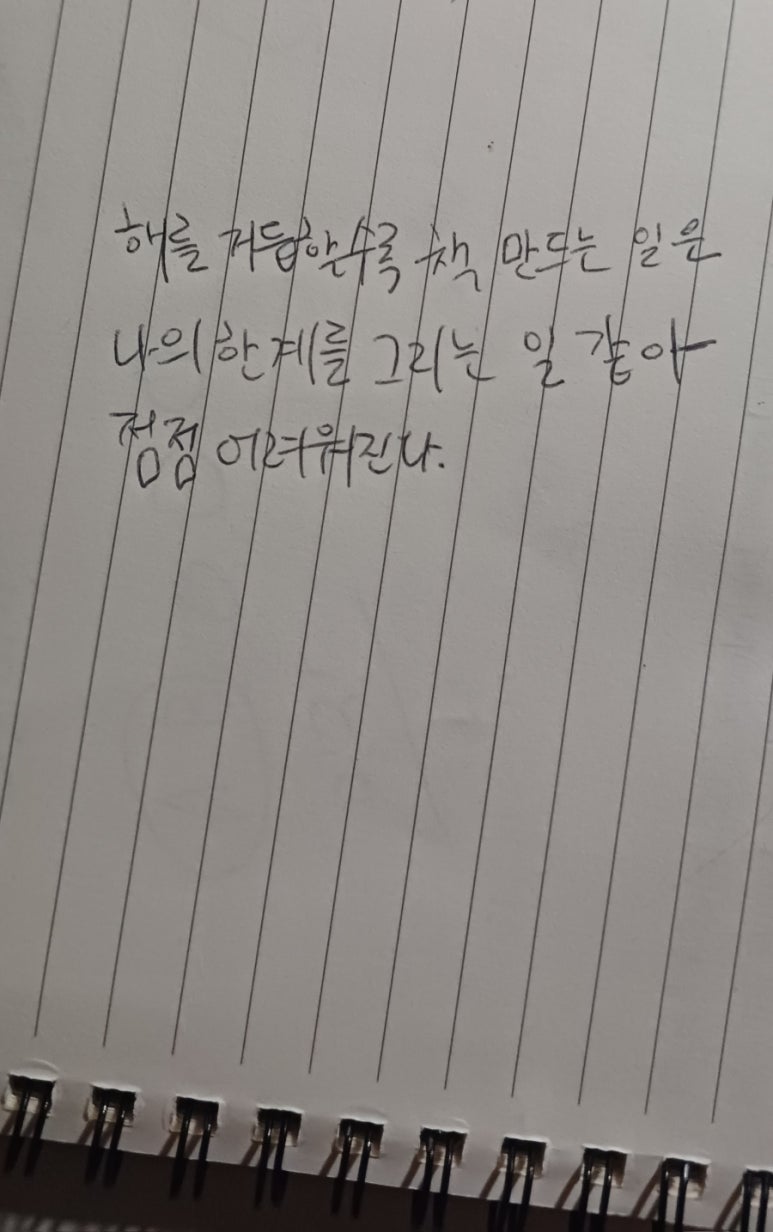 해를 거듭할수록 책 만드는 일은
나의 한계를 그리는 일 같아
점점 어려워진다.